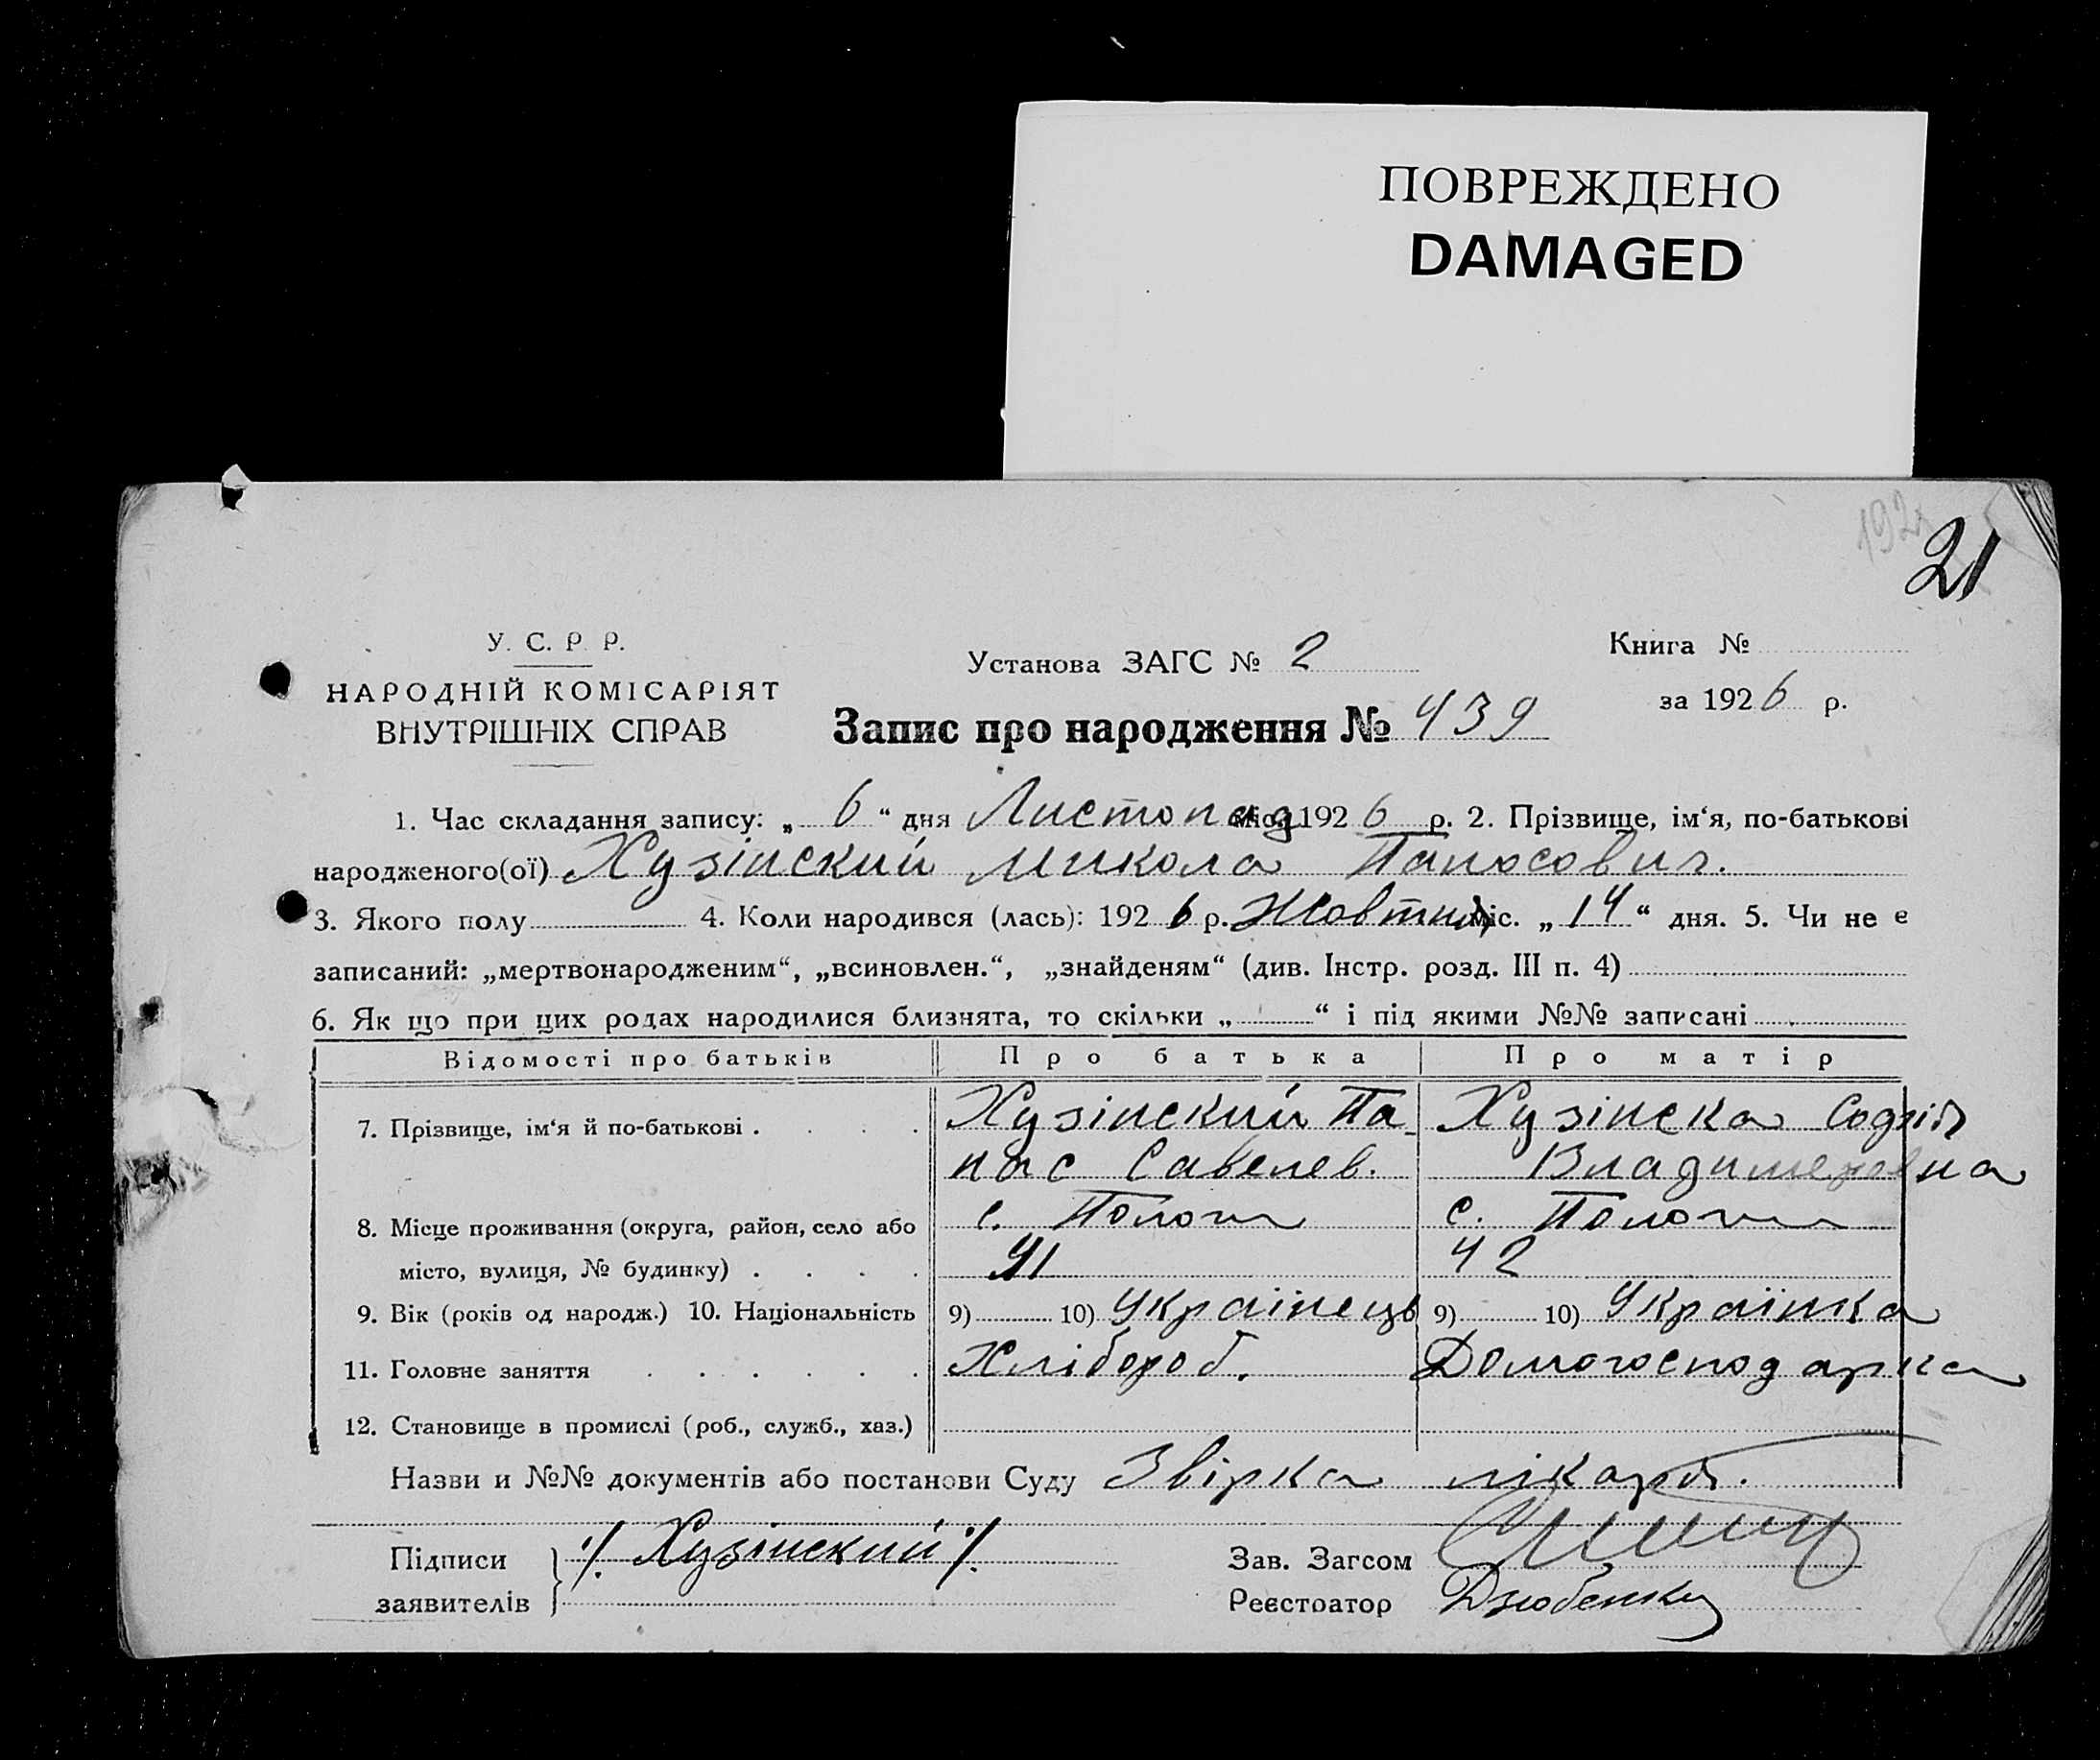 ПОВРЕЖДЕНО
DAMAGED
21
У. С. Р. Р.
НАРОДНІЙ КОМІСАРІЯТ
ВНУТРІШНІХ СПРАВ
Установа ЗАГС № 2
Книга №
за 1926 р.
Запис про народження № 439
1. Час складання запису: „ 6 “ дня Листопад міс. 1926 р. 2. Прізвище, ім‘я, по-батькові
народженого(ої) Хузінский Микола Панасович.
3. Якого полу 4. Коли народився (лась): 1926 р. Жовтня міс. „ 14 “ дня. 5. Чи не є
записаний: „мертвонародженим“, „всиновлен.“, „знайденям“ (див. Інстр. розд. III п. 4)
6. Як що при цих родах народилися близнята, то скільки „ “ і під якими №№ записані
Відомості про батьків Про батька Про матір
7. Прізвище, ім‘я й по-батькові . . . . Хузінский Па- Хузінска Софія
нас Савелев. Владимеровна
8. Місце проживання (округа, район, село або с. Пологи с. Пологи
місто, вулиця, № будинку) . . . . 41 42
9. Вік (років од народж.) 10. Національність 9) 10) Українець 9) 10) Українка
11. Головне заняття . . . . . . Хлібороб. Домогосподарка
12. Становище в промислі (роб., служб., хаз.)
Назви и №№ документів або постанови Суду Звірка лікаря.
Підписи /. Хузінский /.
заявителів
Зав. Загсом
Реєстратор Дзюбенко